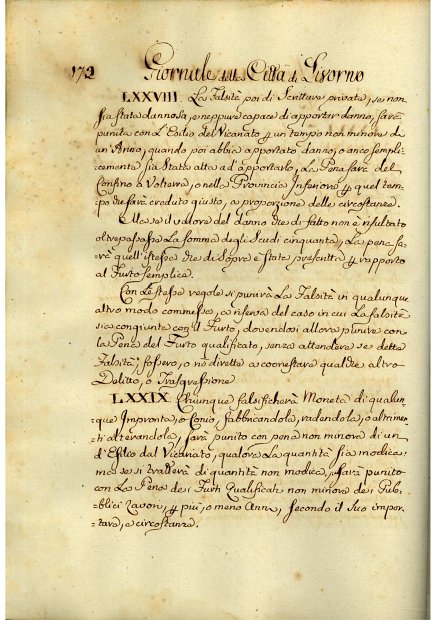 172 Giornale della Città di Livorno
LXXVIII. La Falsità poi di Scritture private, se non
sia stata dannosa, e neppure capace di apportar danno, sarà
punita con l'Esilio del Vicariato per un tempo non minore di
un'Anno, quando poi abbia apportato danno, o anco sempli-
cemente sia stata atta ad'apportarlo, La Pena sarà del
Confino a Volterra, o nella Provincia Inferiore per quel tem-
po che sarà creduto giusto, a proporzione delle circostanze.
Ma se il valore del danno che di fatto non è risultato
oltrepassasse La somma degli Scudi cinquanta, La pena sa-
rà quell'istessa che di sopra è stata prescritta per rapporto
al Furto semplice.
Con L'istesse regole si punirà La Falsità in qualunque
altro modo commessa, a riserva del caso in cui La falsità
sia congiunta con il Furto, dovendosi allora punire con
La Pena del Furto qualificato, senza attendere se detta
Falsità, fossero, o nò diretta a coonestare qualche altro
Delitto, o Trasgressione.
LXXIX. Chiunque falsificherà Moneta di qualun-
que Impronta, o Conio, fabbricandola, radendola, o altrimen-
ti alterandola, sarà punito con pena non minore di un
d'Esilio dal Vicariato, qualora La quantità sia modica:
ma se si tratterà di quantità non modica, sarà punito
con La Pena dei Furti Qualificati non minore dei Pub-
blici Lavori, per più, o meno Anni, secondo il suo impor-
tare, e circostanze.